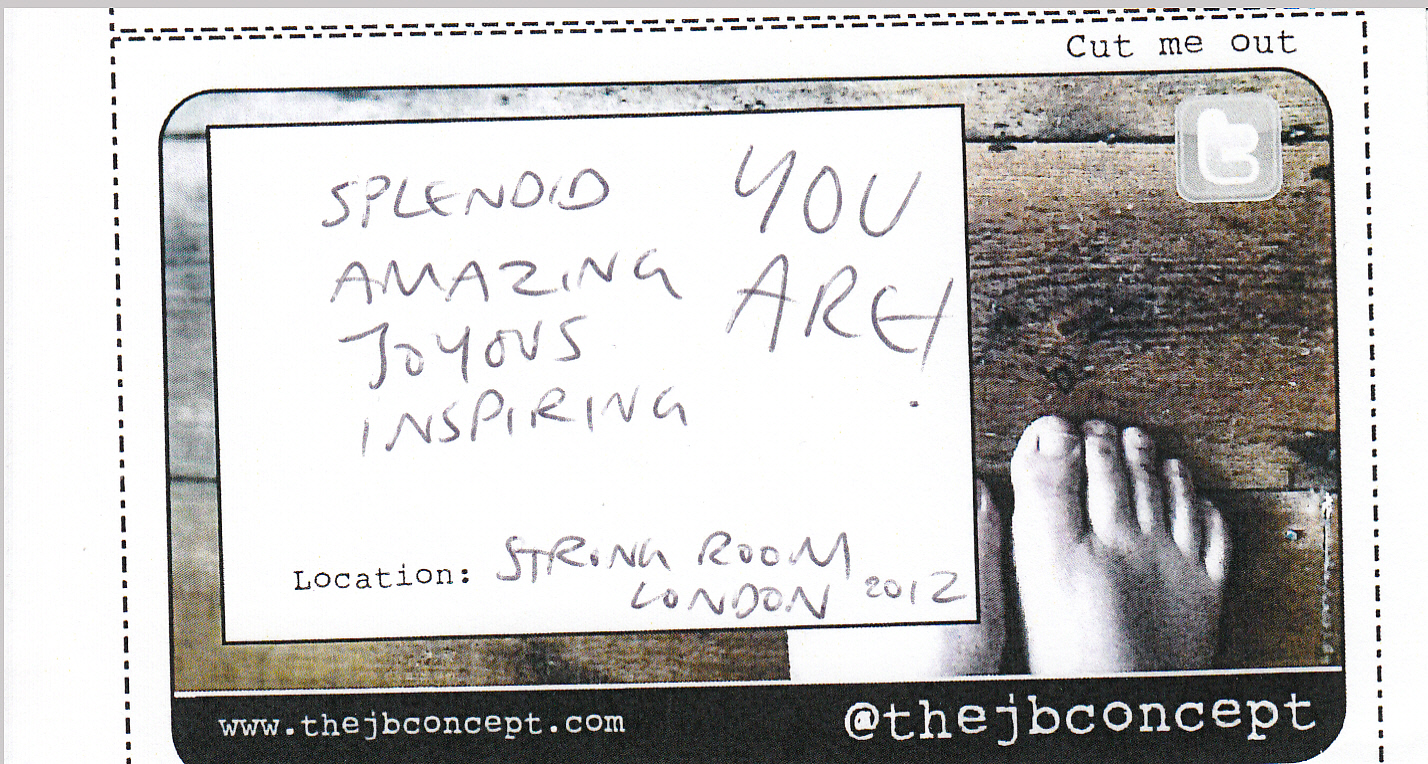 Cut me out
SPLENDID
AMAZING
JOYOUS
INSPIRING
YOU
ARE!
Location: STRONG ROOM
LONDON 2012
www.thejbconcept.com
@thejbconcept